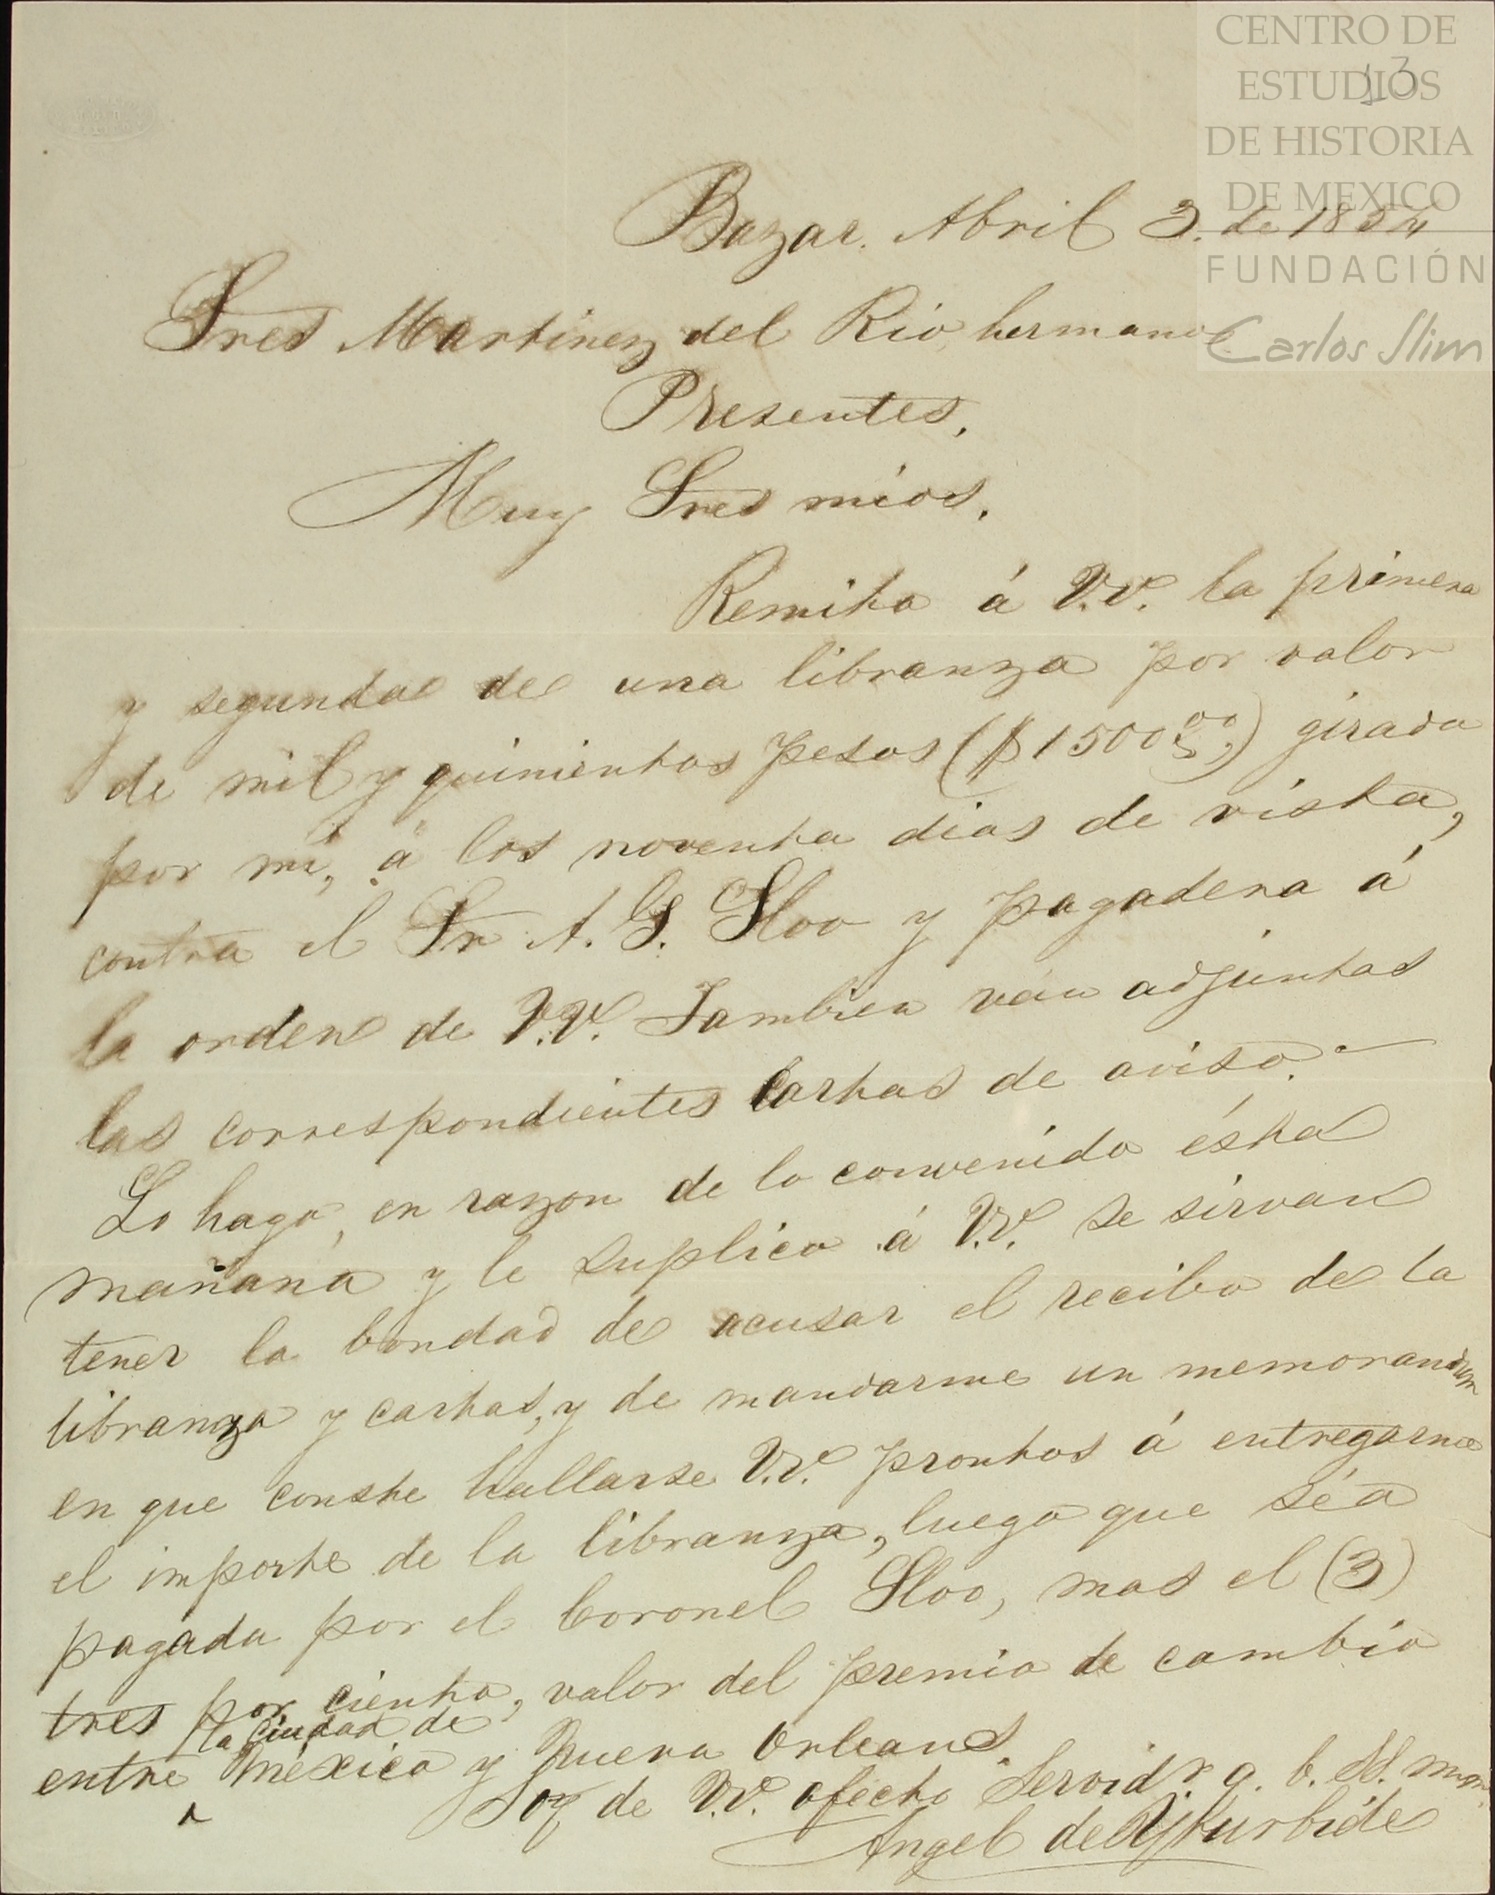 CENTRO DE
ESTUDIOS
DE HISTORIA
DE MEXICO
FUNDACIÓN
Carlos Slim
13
Bazar. Abril 3. de 1854
Sres Martinez del Rio hermanos
Presentes.
Muy Sres mios.
Remito á V.V. la primera
y segunda de una libranza por valor
de mil y quinientos pesos ($1500 00) girada
por mi, á los noventa dias de vista,
contra el Sr. A. G. Sloo y pagadera á
la orden de V.V. Tambien ván adjuntas
las correspondientes Cartas de aviso.—
Lo hago, en razon de lo convenido ésta
mañana y le suplico á V.V. se sirvan
tener la bondad de acusar el recibo de la
libranza y cartas, y de mandarme un memorandum
en que conste hallarse V.V. prontos á entregarme
el importe de la libranza, luego que séa
pagada por el Coronel Sloo, mas el (3)
tres por ciento, valor del premio de cambio
la Ciudad de
entre México y Nueva Orleans.
Soy de V.V. afecto Servidr. q. b. SS. man.
Angel de Yturbide